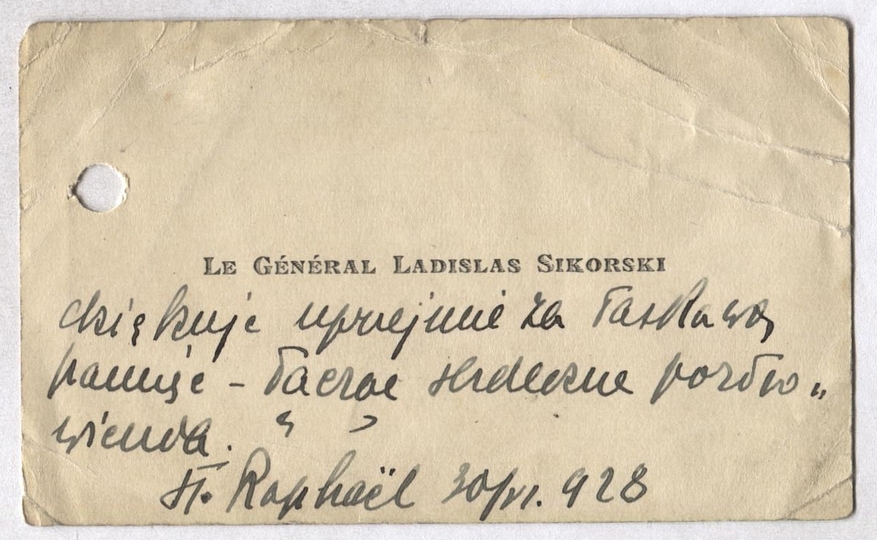 LE GÉNÉRAL LADISLAS SIKORSKI
dziękuje uprzejmie za łaskawą
pamięć – łącząc serdeczne pozdro„
wienia.
St. Raphaël 30/VI. 928